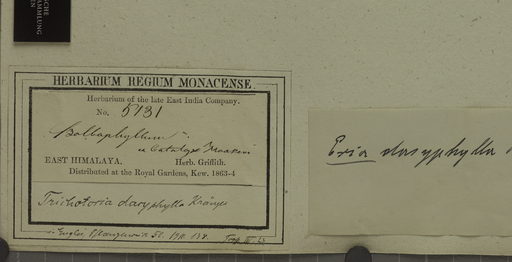 SCHE
SAMMLUNG
EN
HERBARIUM REGIUM MONACENSE.
Herbarium of the late East India Company.
No. 5131
Bolbophyllum
EAST HIMALAYA. Herb. Griffith.
Distributed at the Royal Gardens, Kew. 1863-4
Trichotosia dasyphylla Kränzl
Engler, Pflanzenreich
Eria dasyphylla